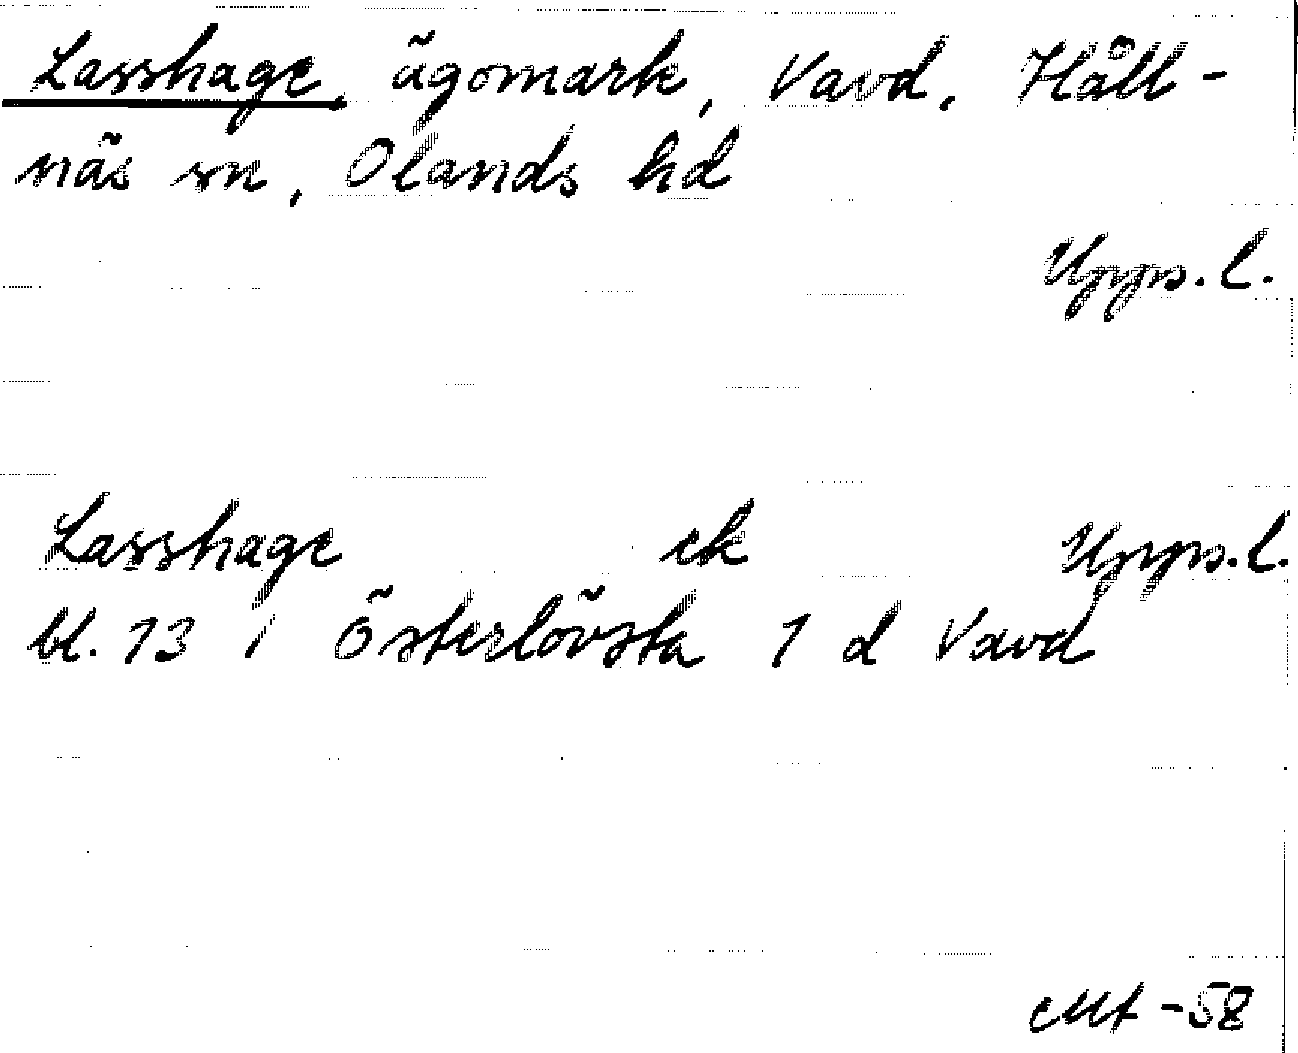 Lasshage, ägomark, Vavd, Håll-
näs sn, Olands hd
Upps. l.
Lasshage ek Upps. l.
bl. 13 i Österlövsta 1 d Vavd
Mt -58